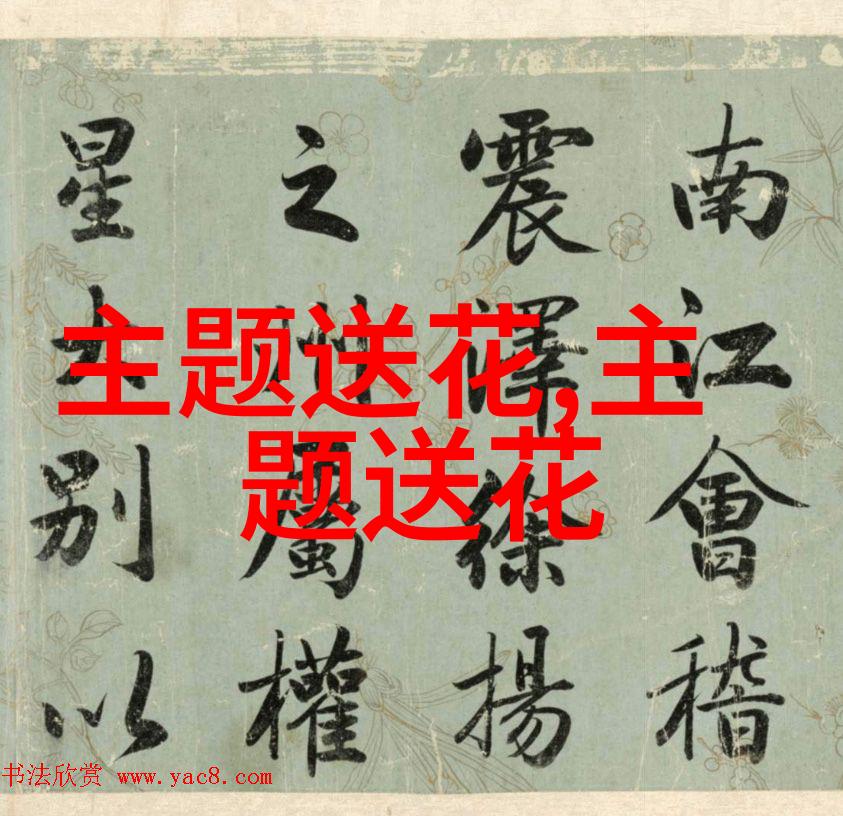 南江會稽
震澤徐揚
之州屬權
星大別以
主题送花,主
题送花
书法欣赏 www.yac8.com